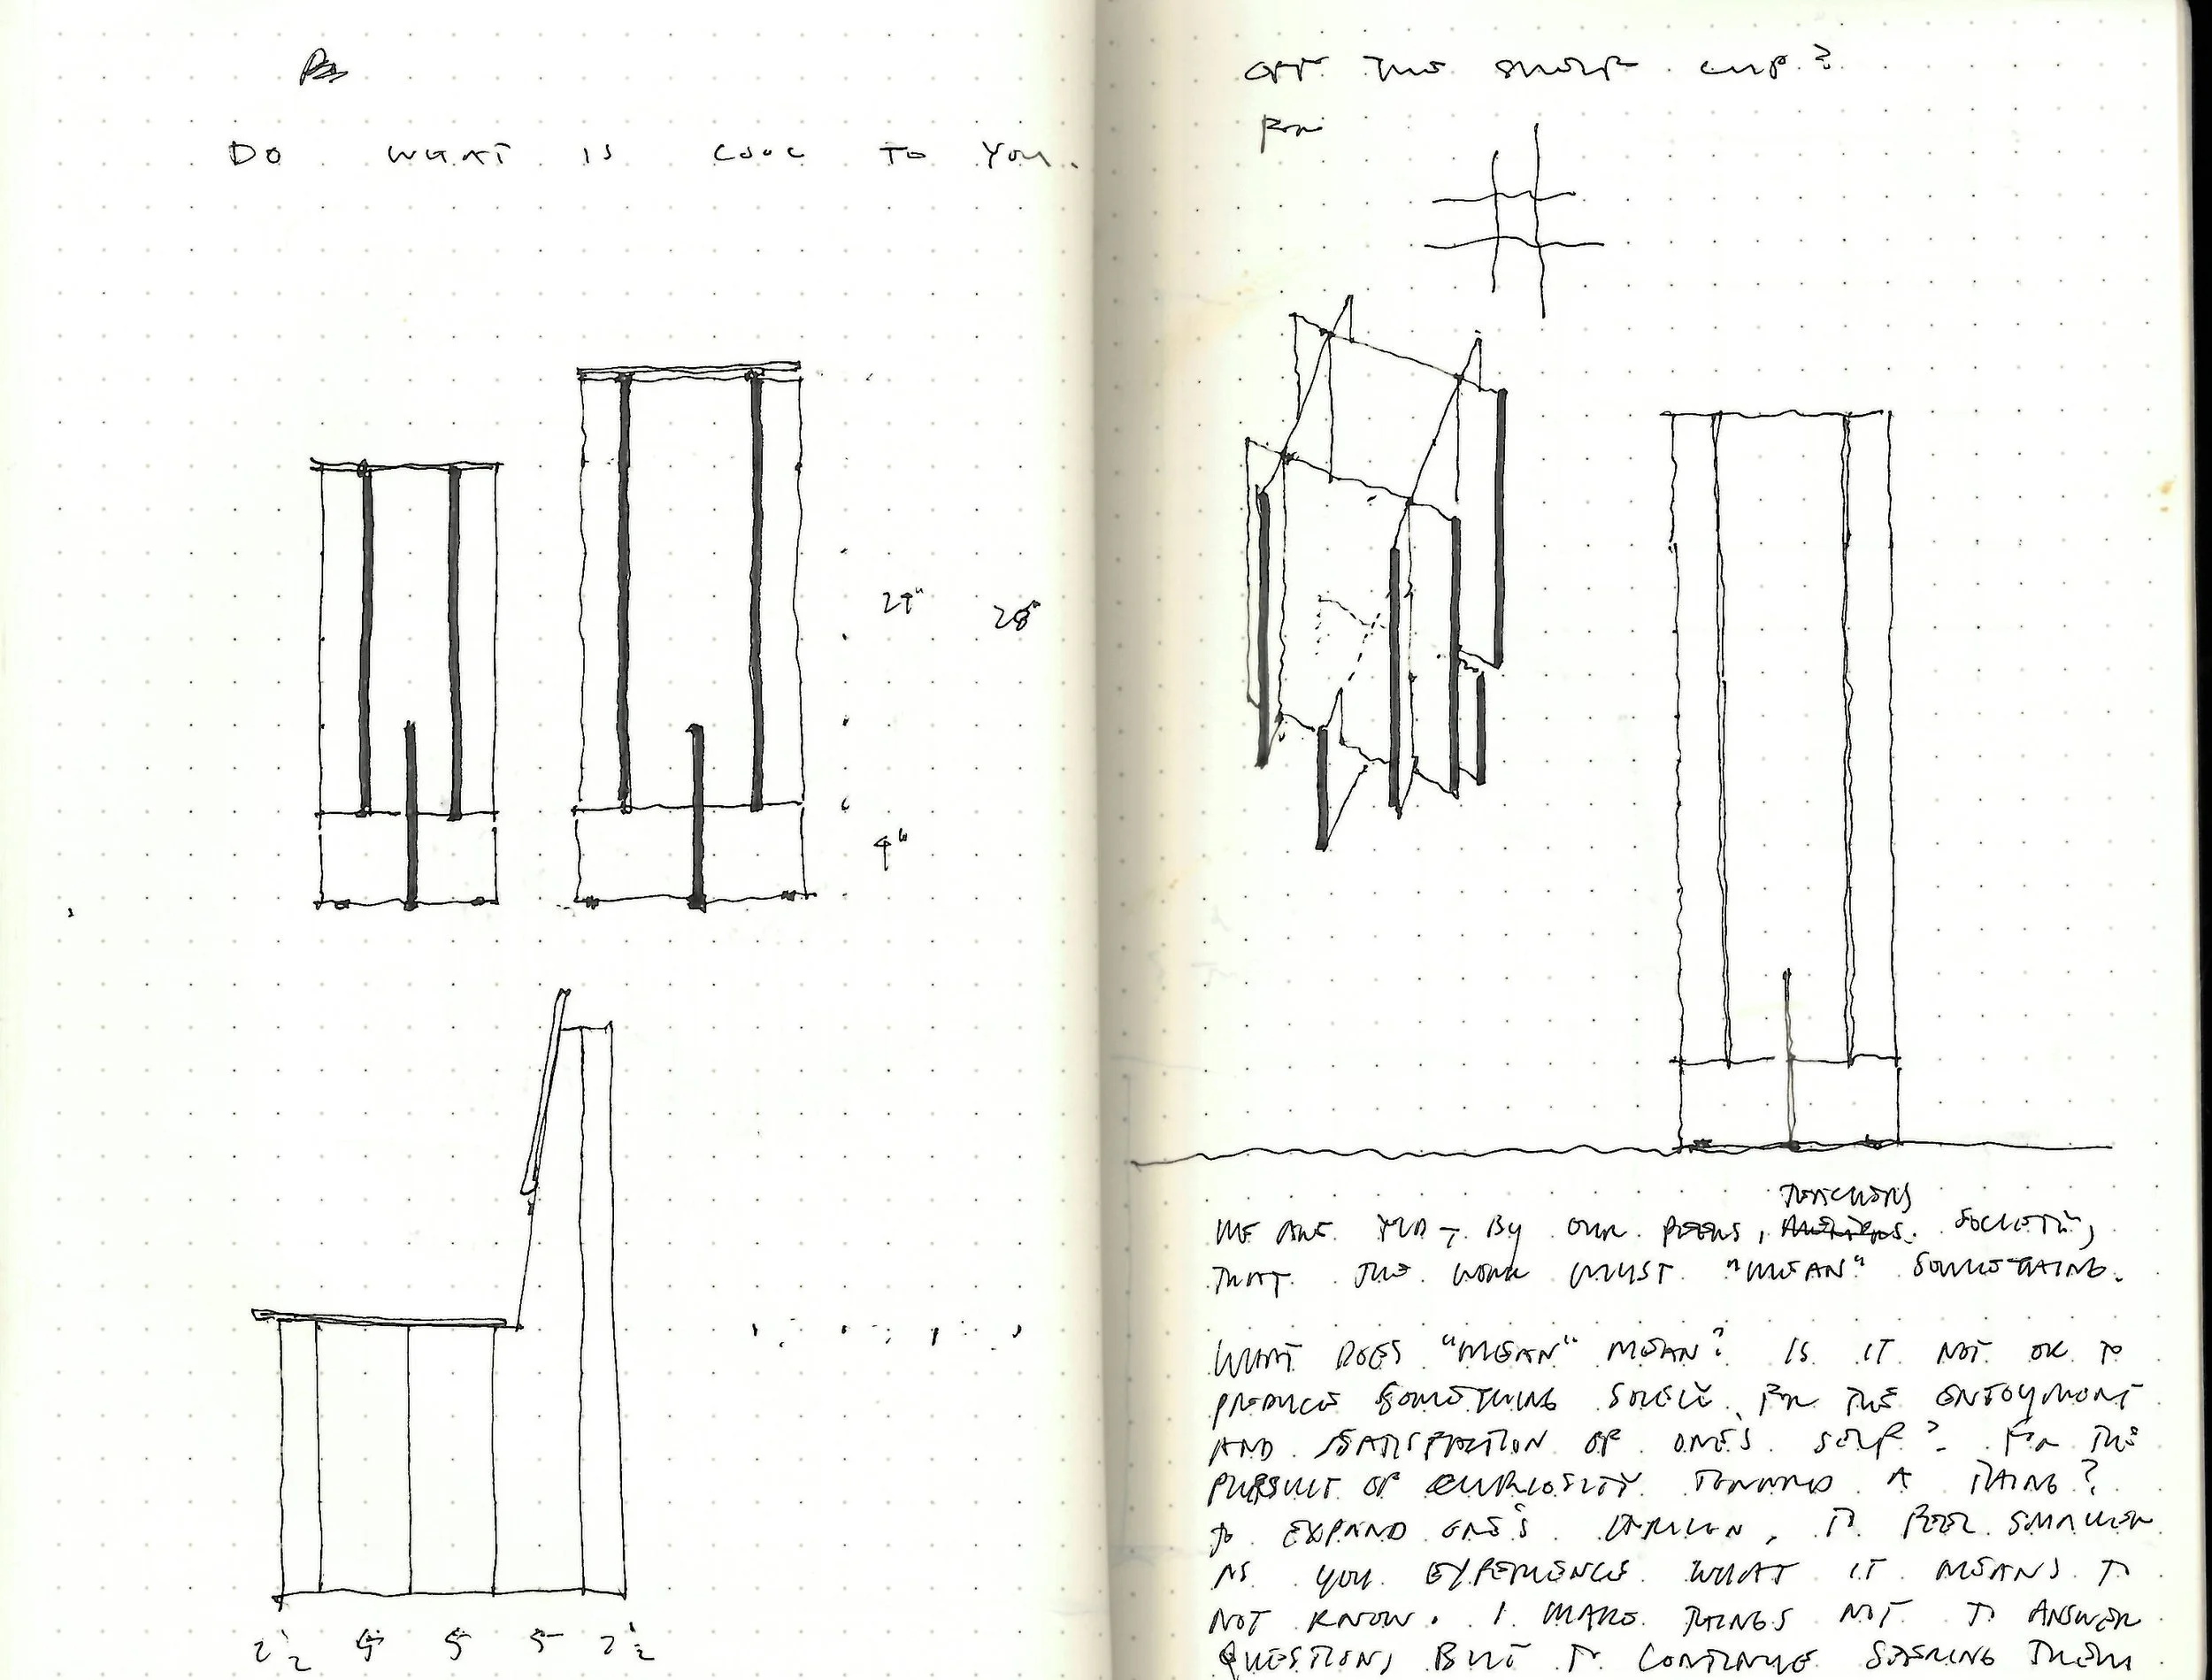 DO WHAT IS COOL TO YOU.
28"
4"
2 1/2 5 5 5 2 1/2
OFF THE SHELF CUP?
FOR
TEACHERS
WE ARE TOLD BY OUR PEERS, SOCIETY,
THAT THE WORK MUST "MEAN" SOMETHING.
WHAT DOES "MEAN" MEAN? IS IT NOT OK TO
PRODUCE SOMETHING SOLELY FOR THE ENJOYMENT
AND SATISFACTION OF ONE'S SELF? FOR THE
PURSUIT OF CURIOSITY TOWARD A THING?
TO EXPAND ONE'S, TO FEEL SMALLER
AS YOU EXPERIENCE WHAT IT MEANS TO
NOT KNOW. I MAKE THINGS NOT TO ANSWER
QUESTIONS BUT TO CONTINUE SEEKING THEM